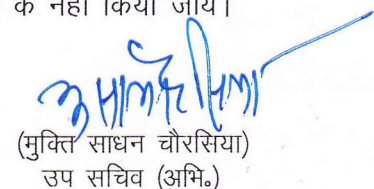 के नहीं किया जाय।
(मुक्ति साधन चौरसिया)
उप सचिव (अभि०)